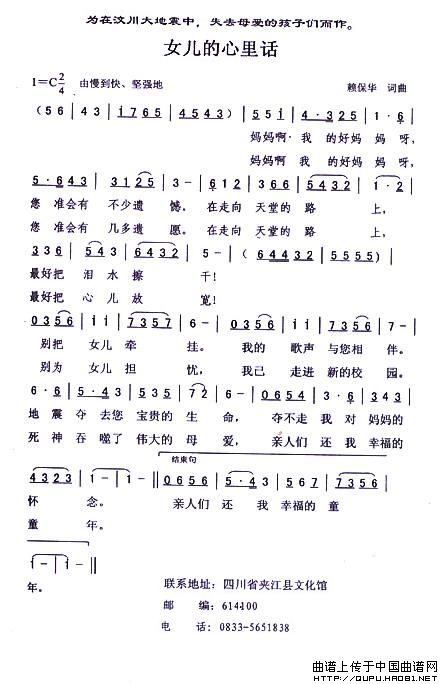 为在汶川大地震中，失去母爱的孩子们而作。
女儿的心里话
1=C 2/4 由慢到快、坚强地 赖保华 词曲
(56 | 6543 | i765 | 4543) | 55i | 4·325 | 1·6 |
妈妈啊，我的好妈妈呀，
妈妈啊我的好妈妈呀，
5·643 | 3125 | 3- | 612 | 366 | 5432 | 1·2 |
您准会有不少遗憾。在走向天堂的路上，
您准会有几多遗愿。在走向天堂的路上，
336 | 543 | 6432 | 5- | (64432 | 5555) |
最好把泪水擦干！
最好把心儿放宽！
0356 | ii | 7357 | 6- | 0356 | 333 | 6356 | 7- |
别把女儿牵挂。我的歌声与您相伴。
别为女儿担忧，我已走进新的校园。
6·6 | 5·43 | 535 | 72 | 6- | 0654 | 3·6 | 234 |
地震夺去您宝贵的生命，夺不走我对妈妈的
死神吞噬了伟大的母爱，亲人们还我幸福的
结束句
4323 | 1- | 1- | 0656 | 5·43 | 567 | 7356 |
怀念。亲人们还我幸福的童
童年。
i- | i- | i- | i- |
年。
联系地址：四川省夹江县文化馆
邮 编：614100
电 话：0833-5651838
曲谱上传于中国曲谱网
HTTP://QUPU.HAO81.NET